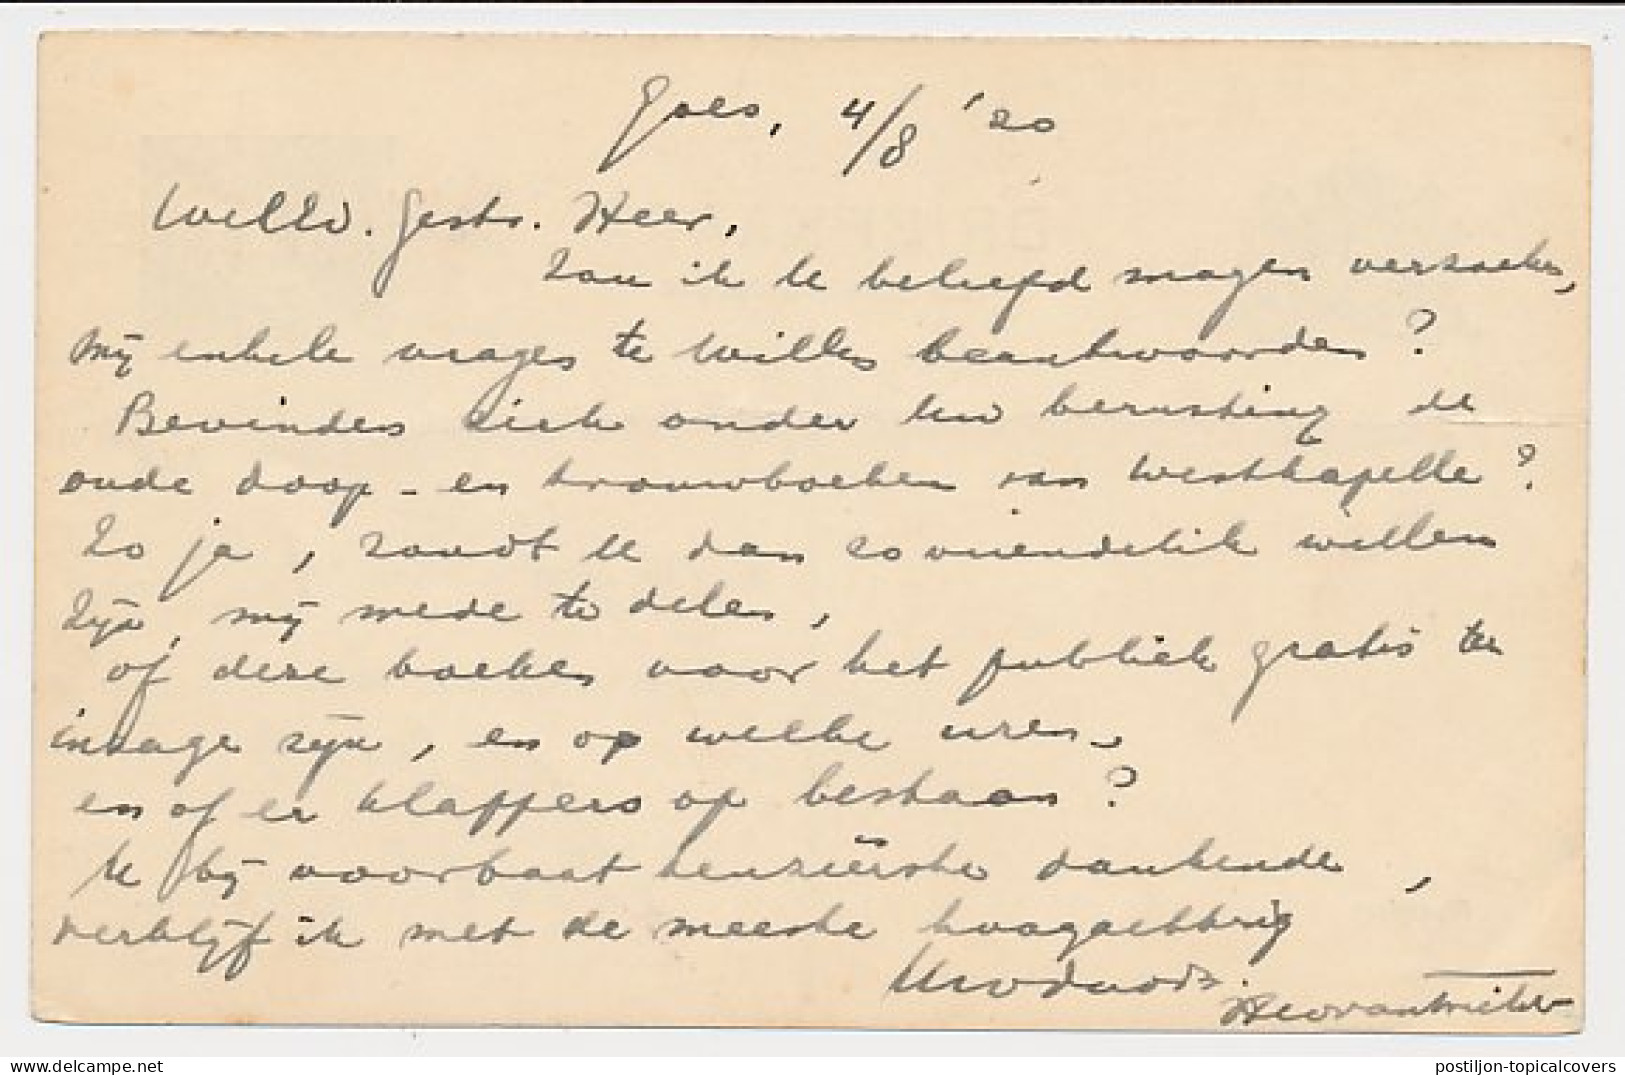 Goes, 4/8 '20
WelEd. Gestr. Heer,
Zou ik U beleefd mogen verzoeken,
mij enkele vragen te willen beantwoorden?
Bevinden zich onder Uw berusting de
oude doop- en trouwboeken van Westkapelle?
Zo ja, zoudt U dan zo vriendelik willen
zijn, mij mede te delen,
of deze boeken voor het publiek gratis ter
inzage zijn, en op welke uren,
en of er klappers op bestaan?
U bij voorbaat ten zeerste dankende,
verblijf ik met de meeste hoogachting
Uw dw. dr.
postiljon-topicalcovers